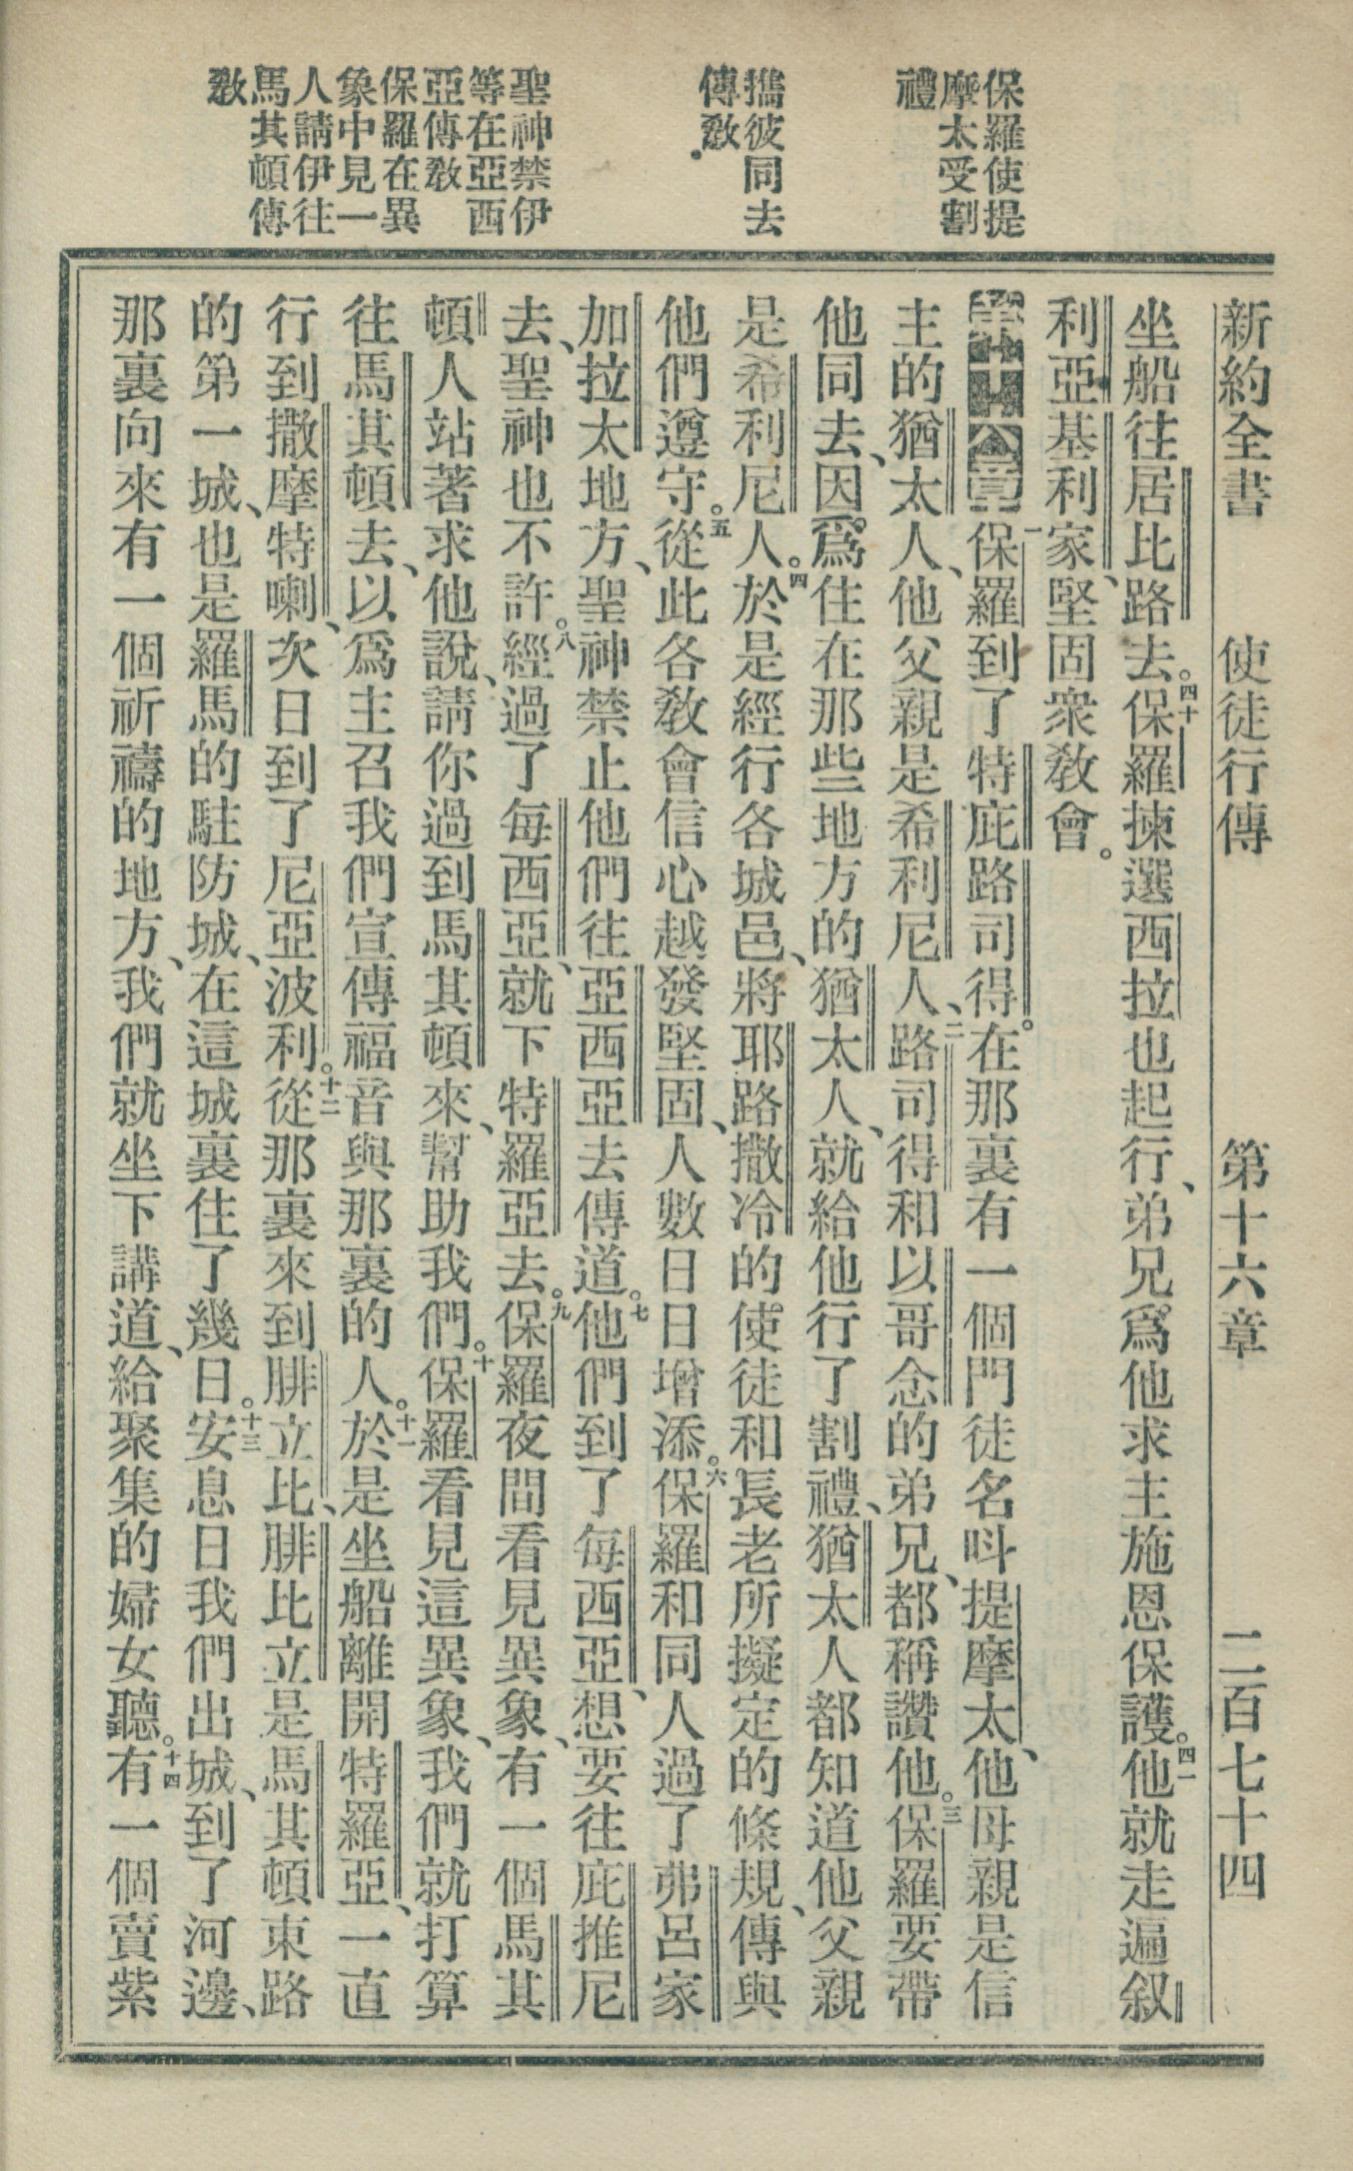 新約全書 使徒行傳 第十六章 二百七十四
保羅使提
摩太受割
禮
攜彼同去
傳敎。
聖神禁伊
等在亞西
亞傳敎
保羅在異
象中見一
人請伊往
馬其頓傳
敎
坐船往居比路去。四十保羅揀選西拉也起行、弟兄爲他求主施恩保護。四一他就走遍叙
利亞基利家、堅固衆敎會。
第十六章一保羅到了特庇路司得。在那裏有一個門徒名呌提摩太、他母親是信
主的猶太人、他父親是希利尼人、二路司得和以哥念的弟兄、都稱讚他。三保羅要帶
他同去、因爲住在那些地方的猶太人、就給他行了割禮、猶太人都知道他父親
是希利尼人。四於是經行各城邑、將耶路撒冷的使徒和長老所擬定的條規、傳與
他們遵守。五從此各敎會信心越發堅固、人數日日增添。六保羅和同人過了弗呂家
加拉太地方、聖神禁止他們往亞西亞去傳道。七他們到了每西亞、想要往庇推尼
去、聖神也不許。八經過了每西亞、就下特羅亞去。九保羅夜間看見異象、有一個馬其
頓人站著求他說、請你過到馬其頓來、幫助我們。十保羅看見這異象、我們就打算
往馬其頓去、以爲主召我們宣傳福音與那裏的人。十一於是坐船離開特羅亞、一直
行到撒摩特喇、次日到了尼亞波利。十二從那裏來到腓立比、腓比立是馬其頓東路
的第一城、也是羅馬的駐防城、在這城裏住了幾日。十三安息日我們出城、到了河邊、
那裏向來有一個祈禱的地方、我們就坐下講道、給聚集的婦女聽。十四有一個賣紫